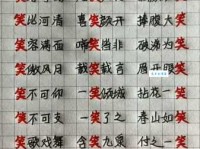 笑比河清 喜笑颜开 捧腹大笑
笑容满面 啼笑皆非 破涕为笑
笑傲风月 载笑载言 眉开眼笑
笑不可仰 一笑倾城 拈花一笑
笑不可支 一笑了之 春山如笑
笑歌戏舞 含笑九泉 付之一笑